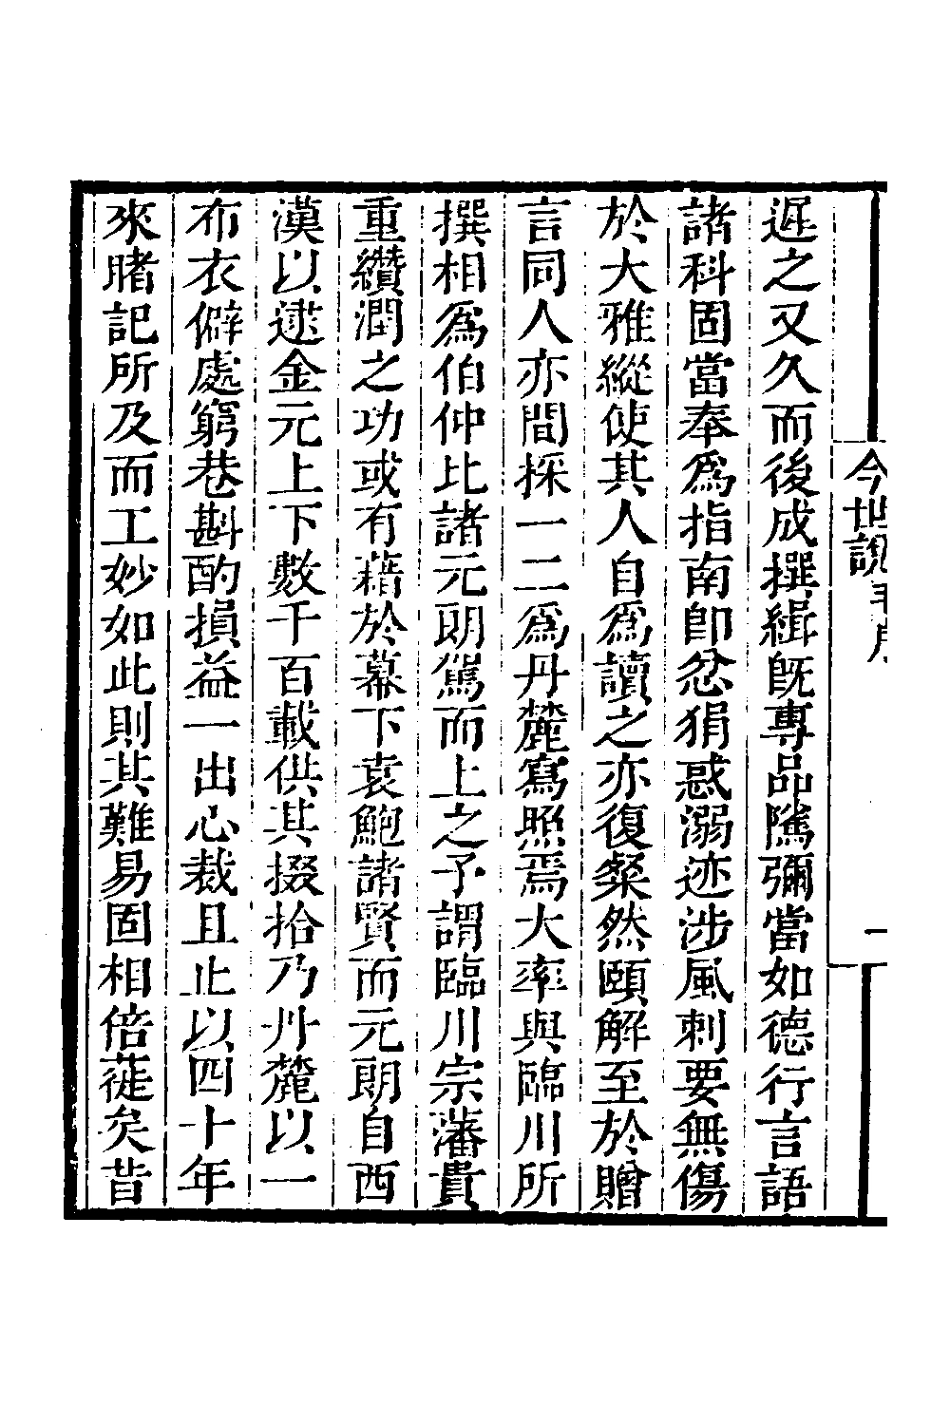 今世說 一
遲之又久而後成撰緝旣專品隲彌當如德行言語
諸科固當奉爲指南卽忿狷惑溺迹涉風刺要無傷
於大雅縱使其人自爲讀之亦復粲然頤解至於贈
言同人亦間採一二爲丹麓寫照焉大率與臨川所
撰相爲伯仲比諸元朗駕而上之予謂臨川宗藩貴
重纘潤之功或有藉於幕下袁鮑諸賢而元朗自西
漢以逮金元上下數千百載供其掇拾乃丹麓以一
布衣僻處窮巷斟酌損益一出心裁且止以四十年
來睹記所及而工妙如此則其難易固相倍蓰矣昔